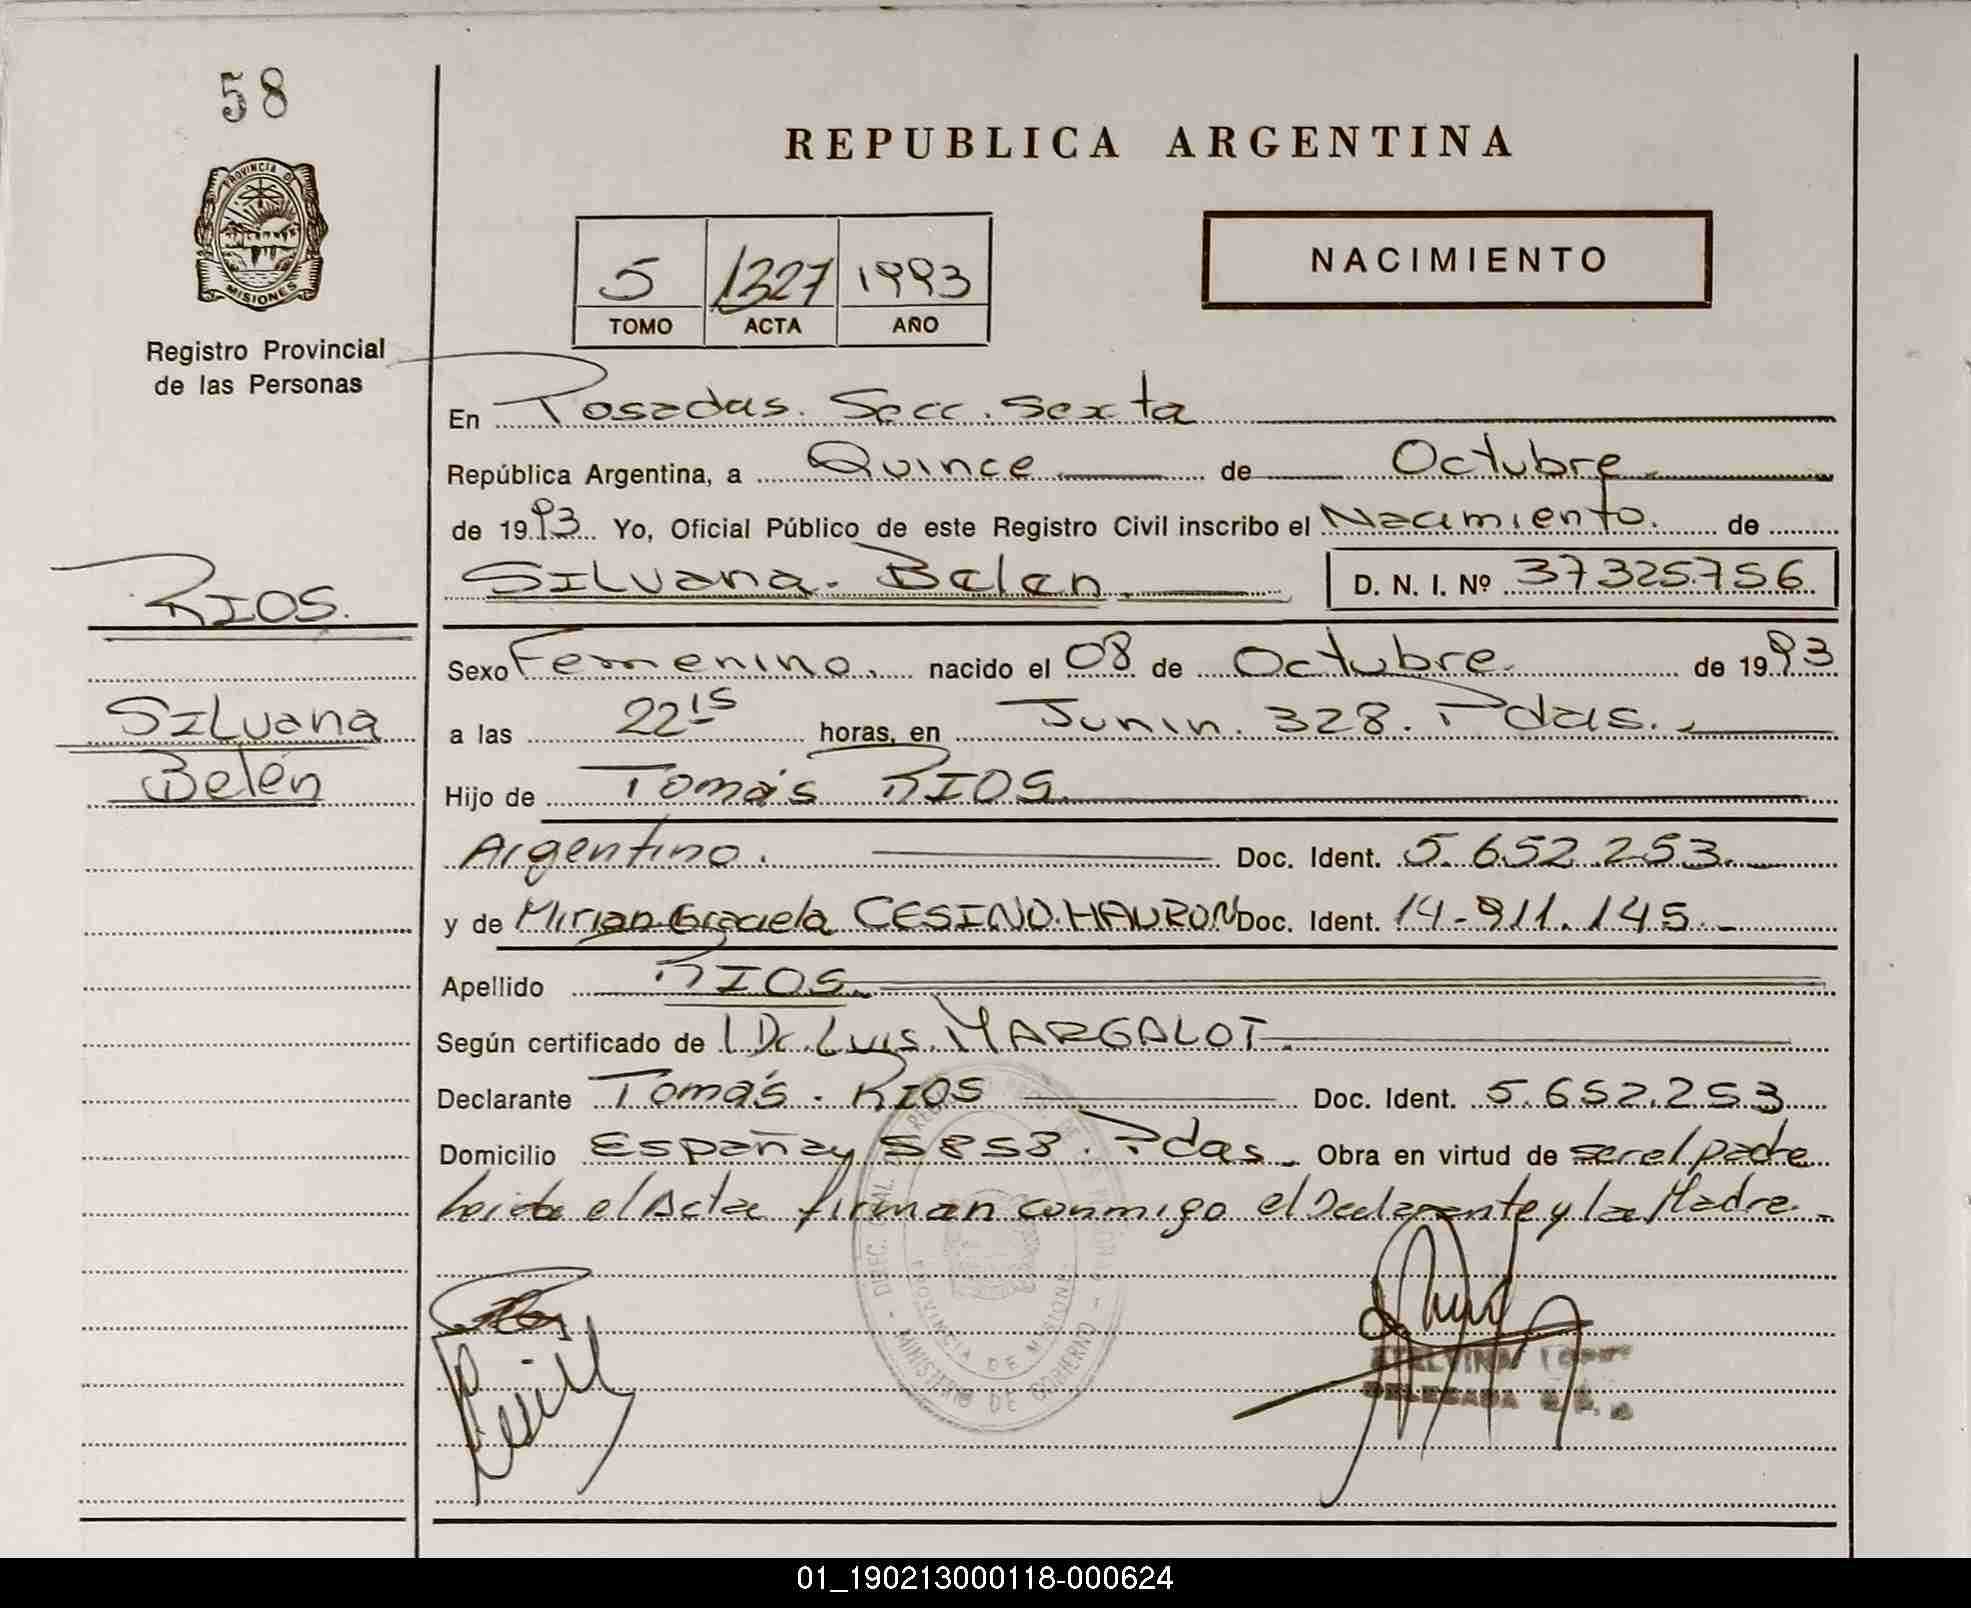 58
REPUBLICA ARGENTINA
PROVINCIA DE
MISIONES
Registro Provincial
de las Personas
5 1327 1993
TOMO ACTA AÑO
NACIMIENTO
En Posadas. Secc. Sexta
República Argentina, a Quince de Octubre
de 1993 Yo, Oficial Público de este Registro Civil inscribo el Nacimiento. de
RIOS.
Silvana
Belén
Silvana. Belen D. N. I. Nº 37325756
Sexo Femenino. nacido el 08 de Octubre. de 1993
a las 22 15 horas, en Junin. 328. Pdas.
Hijo de Tomás RIOS.
Argentino. Doc. Ident. 5.652.253.
y de Mirian Graciela CESINO.HAURON Doc. Ident. 14-911.145.
Apellido RIOS.
Según certificado de l Dr. Luis. MARGALOT.
Declarante Tomás. RIOS Doc. Ident. 5.652.253
Domicilio España y 5853. Pdas. Obra en virtud de ser el padre
leida el Acta firman conmigo el Declarante y la Madre.
MINISTERIO DE GOBIERNO
PROVINCIA DE MISIONES
DELEGADA
01_190213000118-000624